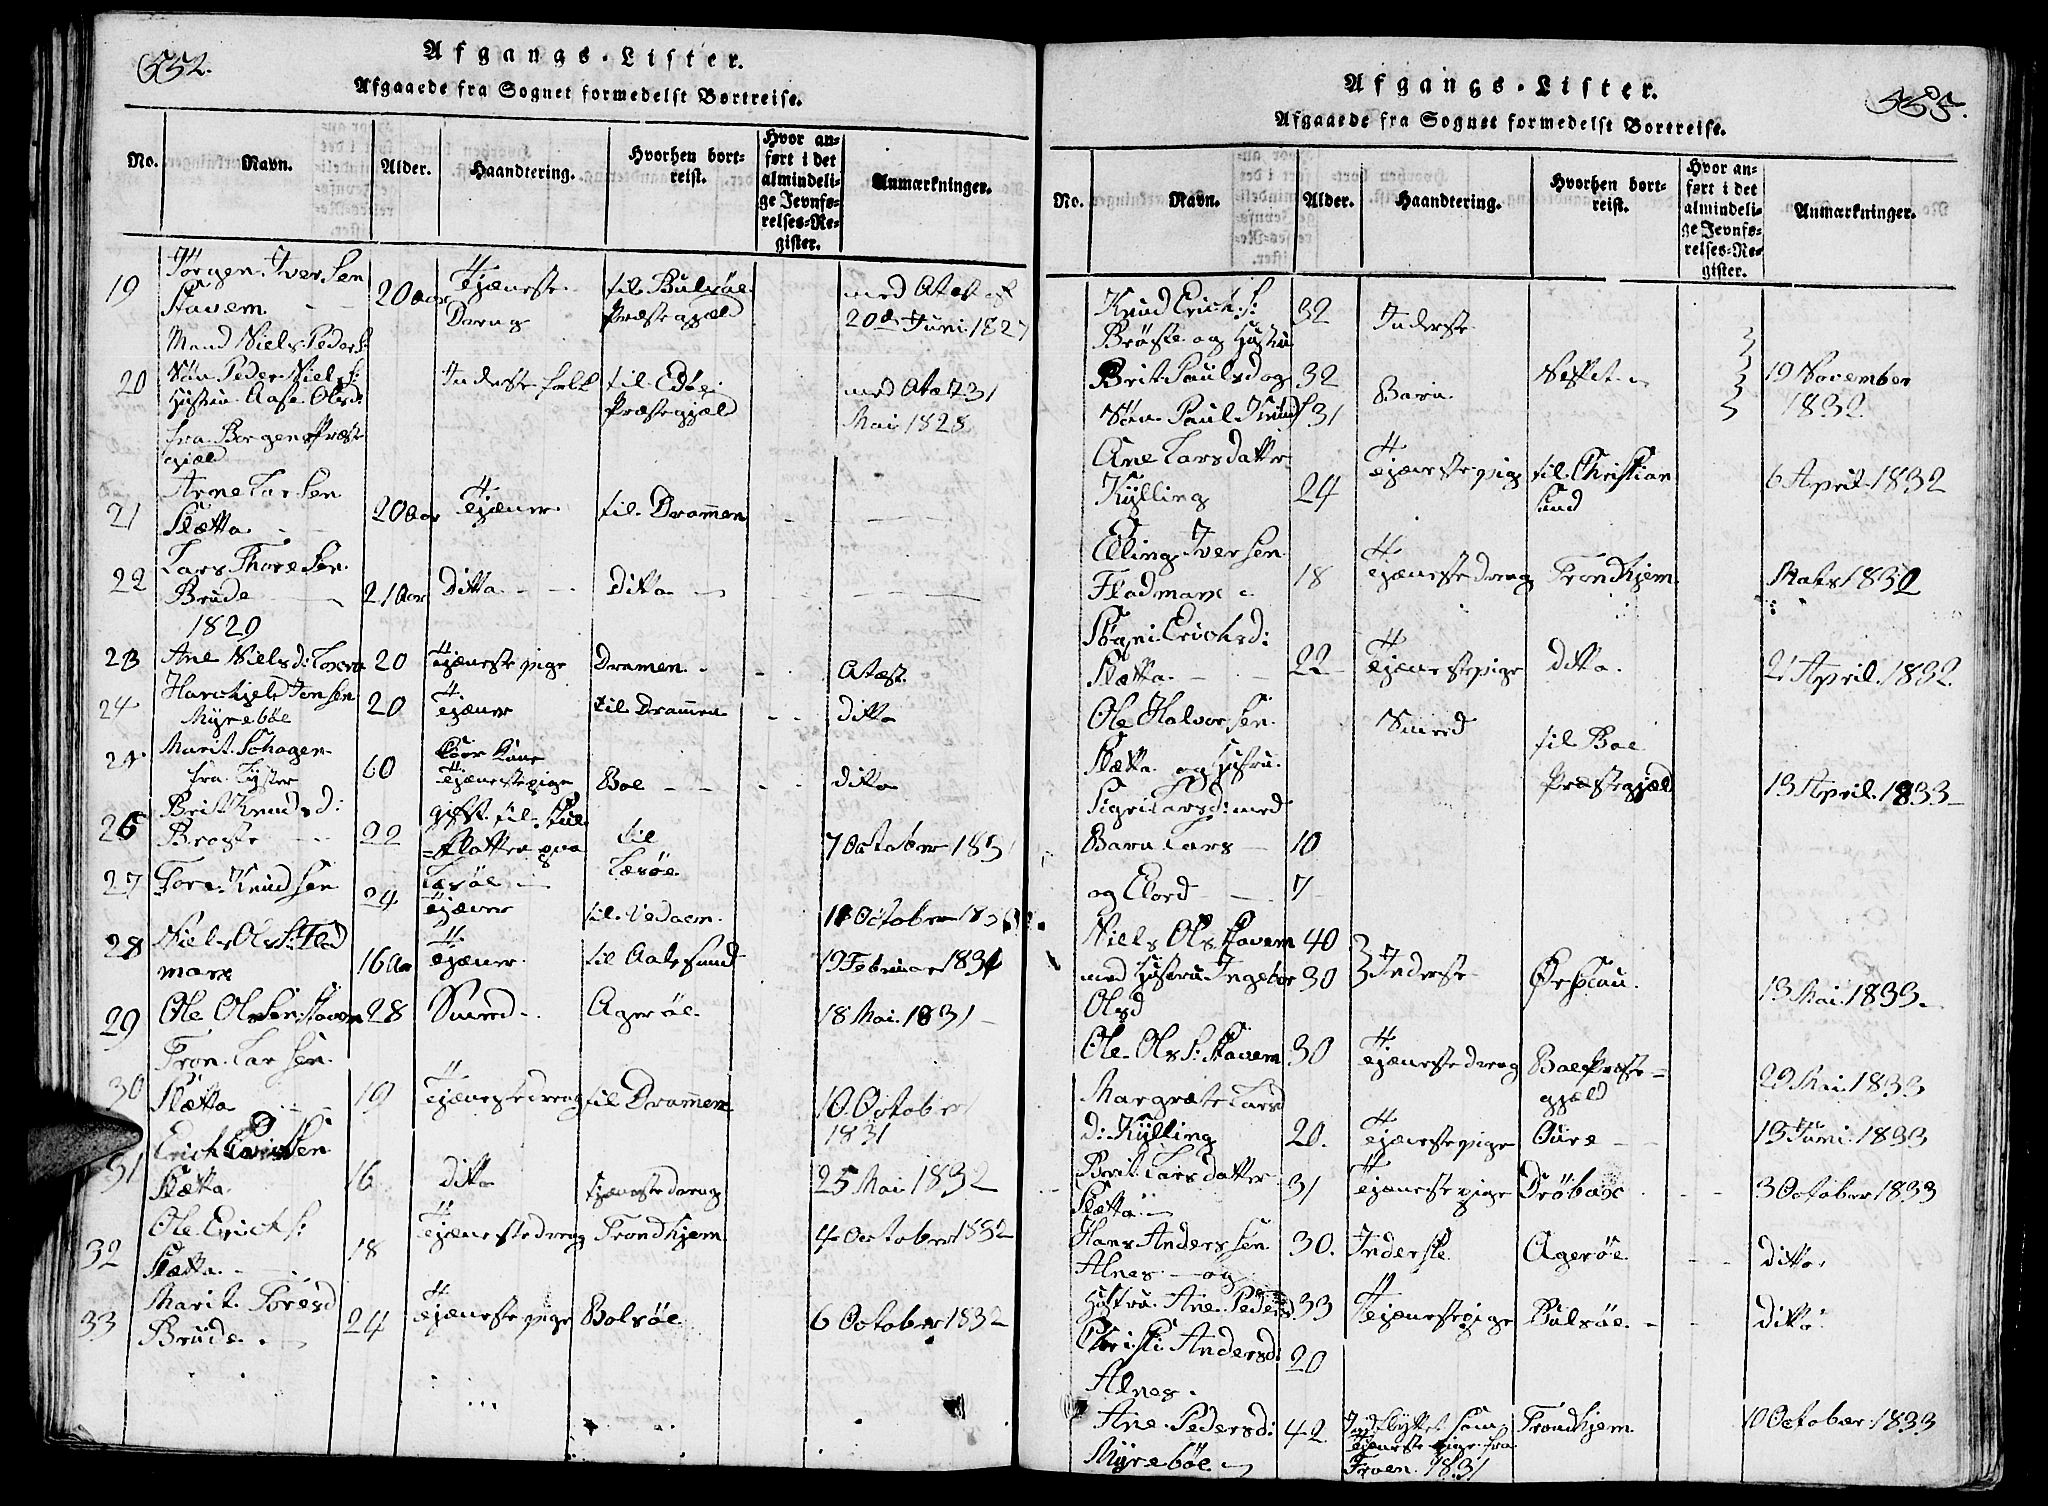 552.
Afgangs-Lister.
Afgaaede fra Sognet formedelst Bortreise.
No. Navn. Alder. Haandtering. Hvorhen bortreist. Hvor anført i det almindelige Jevnførelses-Register. Anmærkninger.
19 Jörgen Iversen Stavem 20 Aar Tjæneste Dreng til Bulsöe Præstegjæld med Atest af 20de Juni 1827
20 Mand Niels Peders: Sön Peder Niels: Hustru Aase Olsd: fra Borgens Præstegjæld Inderste folk til Edöe Præstegjæld med Atæst 31 Mai 1828
21 Arne Larsen Slætta 20 Aar Tjæner til Drammen
22 Lars Thoresen Brude 21 Aar Ditto Ditto
1829
23 Ane Nielsd: 20 Tjæneste pige Dramen Atæst
24 Jonsen Myreböe 20 Tjæner til Drammen ditto
Marit fra Lyster 60 Tjænestepige Boe ditto
26 Brit Knudsd: Bröste 22 gift til til Læsöe 7 October 183
27 Tore Knudsen 24 Tjæner til October 183
28 Niels Ols: Flad marx 16 Aar Tjæner til Aalesund 19 Februar 1831
29 Ole Olsen Stavem 28 Smed Agerøe 18 Mai 1831
30 Tron Larsen Slætta 19 Tjænestedreng til Drammen 10 October 1831
31 Erich Slætta 16 ditto tjænestedreng 25 Mai 1832
32 Ole Erichs: Slætta 18 Tjænestedreng Trondhjem 4 October 1832
33 Marit Toresd Brude 24 Tjænestepige Bolsöe 6 October 1832
Afgangs-Lister.
Afgaaede fra Sognet formedelst Bortreise.
No. Navn. Alder. Haandtering. Hvorhen bortreist. Hvor anført i det almindelige Jevnførelses-Register. Anmærkninger.
Knud Erichs: Bröste og Hustru 32 Inderste
Brit Paulsdog 32 Næsset 19 November
Sön Paul Knuds 31 Barn 1832
Ane Larsdatter Kylling 24 Tjænestepige til Christian Sund 6 April 1832
Elling Iversen Fladmarx 18 Tjænestedreng Trondhjem 1832
Sögni Erichsd: Slætta 22 Tjænestepige ditto 21 April 1832
Ole Halvorsen Slætta og Hustru Smed til Boe Præstegjæld 13 April 1833
Sigri Larsd: med
Barn Lars 10
og 7
Niels Ols Stavem 40
med Hustru Ingebor Olsd 30 Inderste 13 Mai 1833
Ole Ols: Stavem 30 Tjænestedreng Boe Præstegjæld 29 Mai 1833
Margræte Larsd: Kylling 20. Tjænestepige Oure 13 Juni 1833
Brit Larsdatter Slætta 31 Tjænestepige Dröbax 3 October 1833
Hans Andersen Alnes og 30. Inderste Agerøe ditto
Hustru Ane Pedersd 33 Tjænestepige Bulsöe ditto
Christi Andersd: Alnes 20
Ane Pedersd: Myreböe 42 Indflyttet som Tjæneste pige fra 1831 Trondhjem 10 October 1833